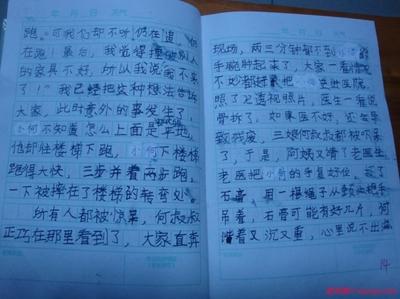 年 月 日 天气
跑。可我们却不听仍在追，仍
在跑！最后，我觉得撞破别人
的家具不好，所以我说我不来
了！”我已经把这种想法告诉
大家，此时意外的事发生了，
小何不知置怎么上面是平地，
他却往楼梯下跑，小何下楼梯
跑得大快，三步并着两步跑，一
下被摔在了楼梯的转弯处。
所有人都被惊呆，何叔叔
正巧在那里看到了，大家直奔
现场，两三分钟都不到
手腕肿起来了，大家一看情况
不妙都好 把 送进医院，
照了 透视照片，医生一看说
骨折了，如果医不好，还会导
致残废，三嬢何叔叔都被吓呆
了，于是，阿姨又请了老医生，
老医把小何的手复好位，敷了
石膏，用一根绳子从颈
吊着，石膏可能有好几斤，何
着又沉又重，心里说不出
14